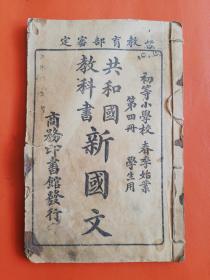 教育部審定
初等小學校 春季始業
第四冊 學生用
共和國
教科書
新國文
商務印書館發行